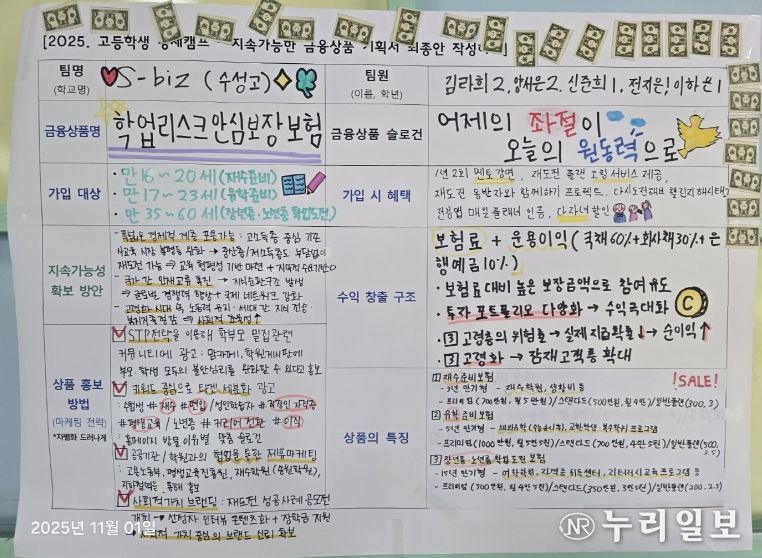 [2025. 고등학생 경제캠프 - 지속가능한 금융상품 기획서 최종안 작성
팀명
(학교명)
S-biz (수성고)
팀원
(이름, 학년)
김라희 2, 양서은 2, 신준희 1, 전지은1, 이하은 1
금융상품명
학업리스크안심보장보험
금융상품 슬로건
어제의 좌절이
오늘의 원동력으로
가입 대상
• 만 16~20세 (재수준비)
• 만 17~23세 (유학준비)
• 만 35~60세 (장년층·노년층 학업도전)
가입 시 혜택
1년 2회 멘토강연, 재도전 플랜 코칭 서비스 제공,
재도전 동반자와 함께하기 프로젝트,
다자녀할인
지속가능성
확보 방안
- 폭넓은 경제적 계층 포용가능 : 고소득층 중심 기존
사교육 시장 불평등 완화 → 중산층/저소득층도 부담없이
재도전 가능 → 교육 형평성 기반 마련 + 지속적 수요기반
- 국가 간 인재교류 촉진 → 지식순환구조 형성
→ 글로벌 경쟁력 향상 + 국제 네트워크 강화
- 고령화 시대 속 노동력 유지·세대 간 지식 전승·
복지지출절감 → 사회적 효율성↑
수익 창출 구조
보험료 + 운용이익 (국채 60%+회사채 30%+은
행예금 10%)
• 보험료 대비 높은 보장금액으로 참여 유도
• 투자 포트폴리오 다양화 → 수익극대화
• [3] 고령층의 위험률 → 실제 지급확률↓ → 순이익↑
• [3] 고령화 → 잠재 고객층 확대
상품 홍보
방법
(마케팅 전략)
*차별화 드러나게
STP전략을 이용해 학부모 밀집관련
커뮤니티에 광고 : 맘카페, 학원게시판에
부모·학생 모두의 불안심리를 완화할 수 있다고 홍보
키워드 중심으로 타겟 세분화 광고
#재수 #편입 /성인학습자 #직장인 자격증
#평생교육 /노년층 #커리어 전환 #이직
: 홈페이지 방문 이유별 맞춤 슬로건
공공기관/학원과의 협업을 통한 제휴마케팅
: 고용노동부, 평생교육진흥원, 재수학원
사회적가치 브랜딩 : 재도전 성공사례 공모전
개최 → 선정자 인터뷰 콘텐츠화 + 장학금 지원
→ 사회적 가치 중심의 브랜드 신뢰 확보
상품의 특징
!SALE!
[1] 재수준비보험
- 3년 만기형 - 재수학원,
- 프리미엄(700만원, 월 5만원)/스탠다드(500만원, 월 4만)/일반플랜(300, 3)
[2] 유학 준비 보험
- 프리미엄(1000만원, 월 5만 5천)/스탠다드(700만원, 월 4만 5천)/일반플랜(500, 3.5)
[3] 장년층·노년층 학업도전 보험
- 프리미엄(500만원, 월 4만 5천)/스탠다드(350만원, 3만 5천)/일반플랜(200, 2.5)
2025년 11월 01일
NR 누리일보